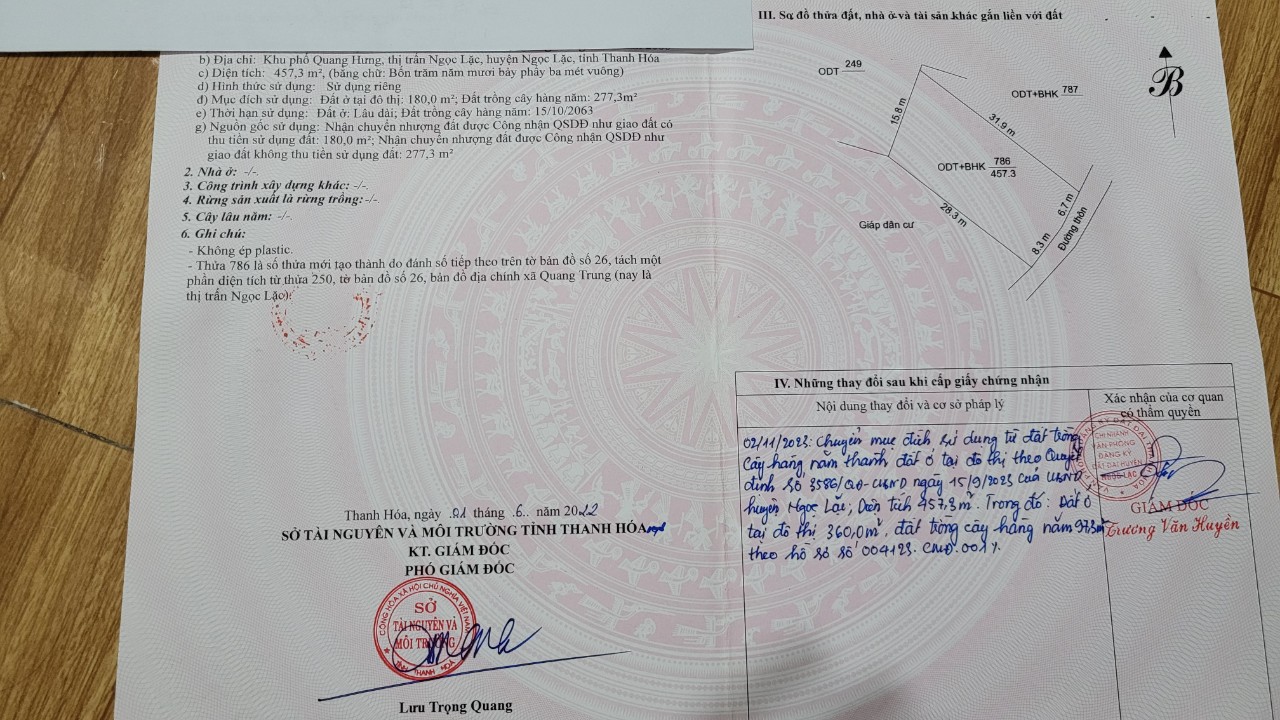 b) Địa chỉ: Khu phố Quang Hưng, thị trấn Ngọc Lặc, huyện Ngọc Lặc, tỉnh Thanh Hóa
c) Diện tích: 457,3 m², (bằng chữ: Bốn trăm năm mươi bảy phẩy ba mét vuông)
d) Hình thức sử dụng: Sử dụng riêng
đ) Mục đích sử dụng: Đất ở tại đô thị: 180,0 m²; Đất trồng cây hàng năm: 277,3m²
e) Thời hạn sử dụng: Đất ở: Lâu dài; Đất trồng cây hàng năm: 15/10/2063
g) Nguồn gốc sử dụng: Nhận chuyển nhượng đất được Công nhận QSDĐ như giao đất có
thu tiền sử dụng đất: 180,0 m²; Nhận chuyển nhượng đất được Công nhận QSDĐ như
giao đất không thu tiền sử dụng đất: 277,3 m²
2. Nhà ở: -/-.
3. Công trình xây dựng khác: -/-.
4. Rừng sản xuất là rừng trồng:-/-.
5. Cây lâu năm: -/-.
6. Ghi chú:
- Không ép plastic.
- Thửa 786 là số thửa mới tạo thành do đánh số tiếp theo trên tờ bản đồ số 26, tách một
phần diện tích từ thửa 250, tờ bản đồ số 26, bản đồ địa chính xã Quang Trung (nay là
thị trấn Ngọc Lặc).
Thanh Hóa, ngày 01 tháng .6.. năm 2022
SỞ TÀI NGUYÊN VÀ MÔI TRƯỜNG TỈNH THANH HÓA
KT. GIÁM ĐỐC
PHÓ GIÁM ĐỐC
CỘNG HÒA XÃ HỘI CHỦ NGHĨA VIỆT NAM
SỞ
TÀI NGUYÊN VÀ
MÔI TRƯỜNG
TỈNH THANH HOÁ
Lưu Trọng Quang
III. Sơ đồ thửa đất, nhà ở và tài sản khác gắn liền với đất
B
ODT 249
ODT+BHK 787
15.8 m
31.9 m
ODT+BHK 786
457.3
28.3 m
6.7 m
8.3 m
Đường thôn
Giáp dân cư
IV. Những thay đổi sau khi cấp giấy chứng nhận
Nội dung thay đổi và cơ sở pháp lý
Xác nhận của cơ quan
có thẩm quyền
02/11/2023: Chuyển mục đích sử dụng từ đất trồng
cây hàng năm thành đất ở tại đô thị theo Quyết
định số 3586/QĐ-UBND ngày 15/9/2023 của UBND
huyện Ngọc Lặc; Diện tích 457,3m². Trong đó: Đất ở
tại đô thị 360,0m², đất trồng cây hàng năm 97,3m²
theo hồ sơ số 004123.CMĐ.001/.
CHI NHÁNH
VĂN PHÒNG
ĐĂNG KÝ
ĐẤT ĐAI HUYỆN
NGỌC LẶC
GIÁM ĐỐC
Trương Văn Huyền